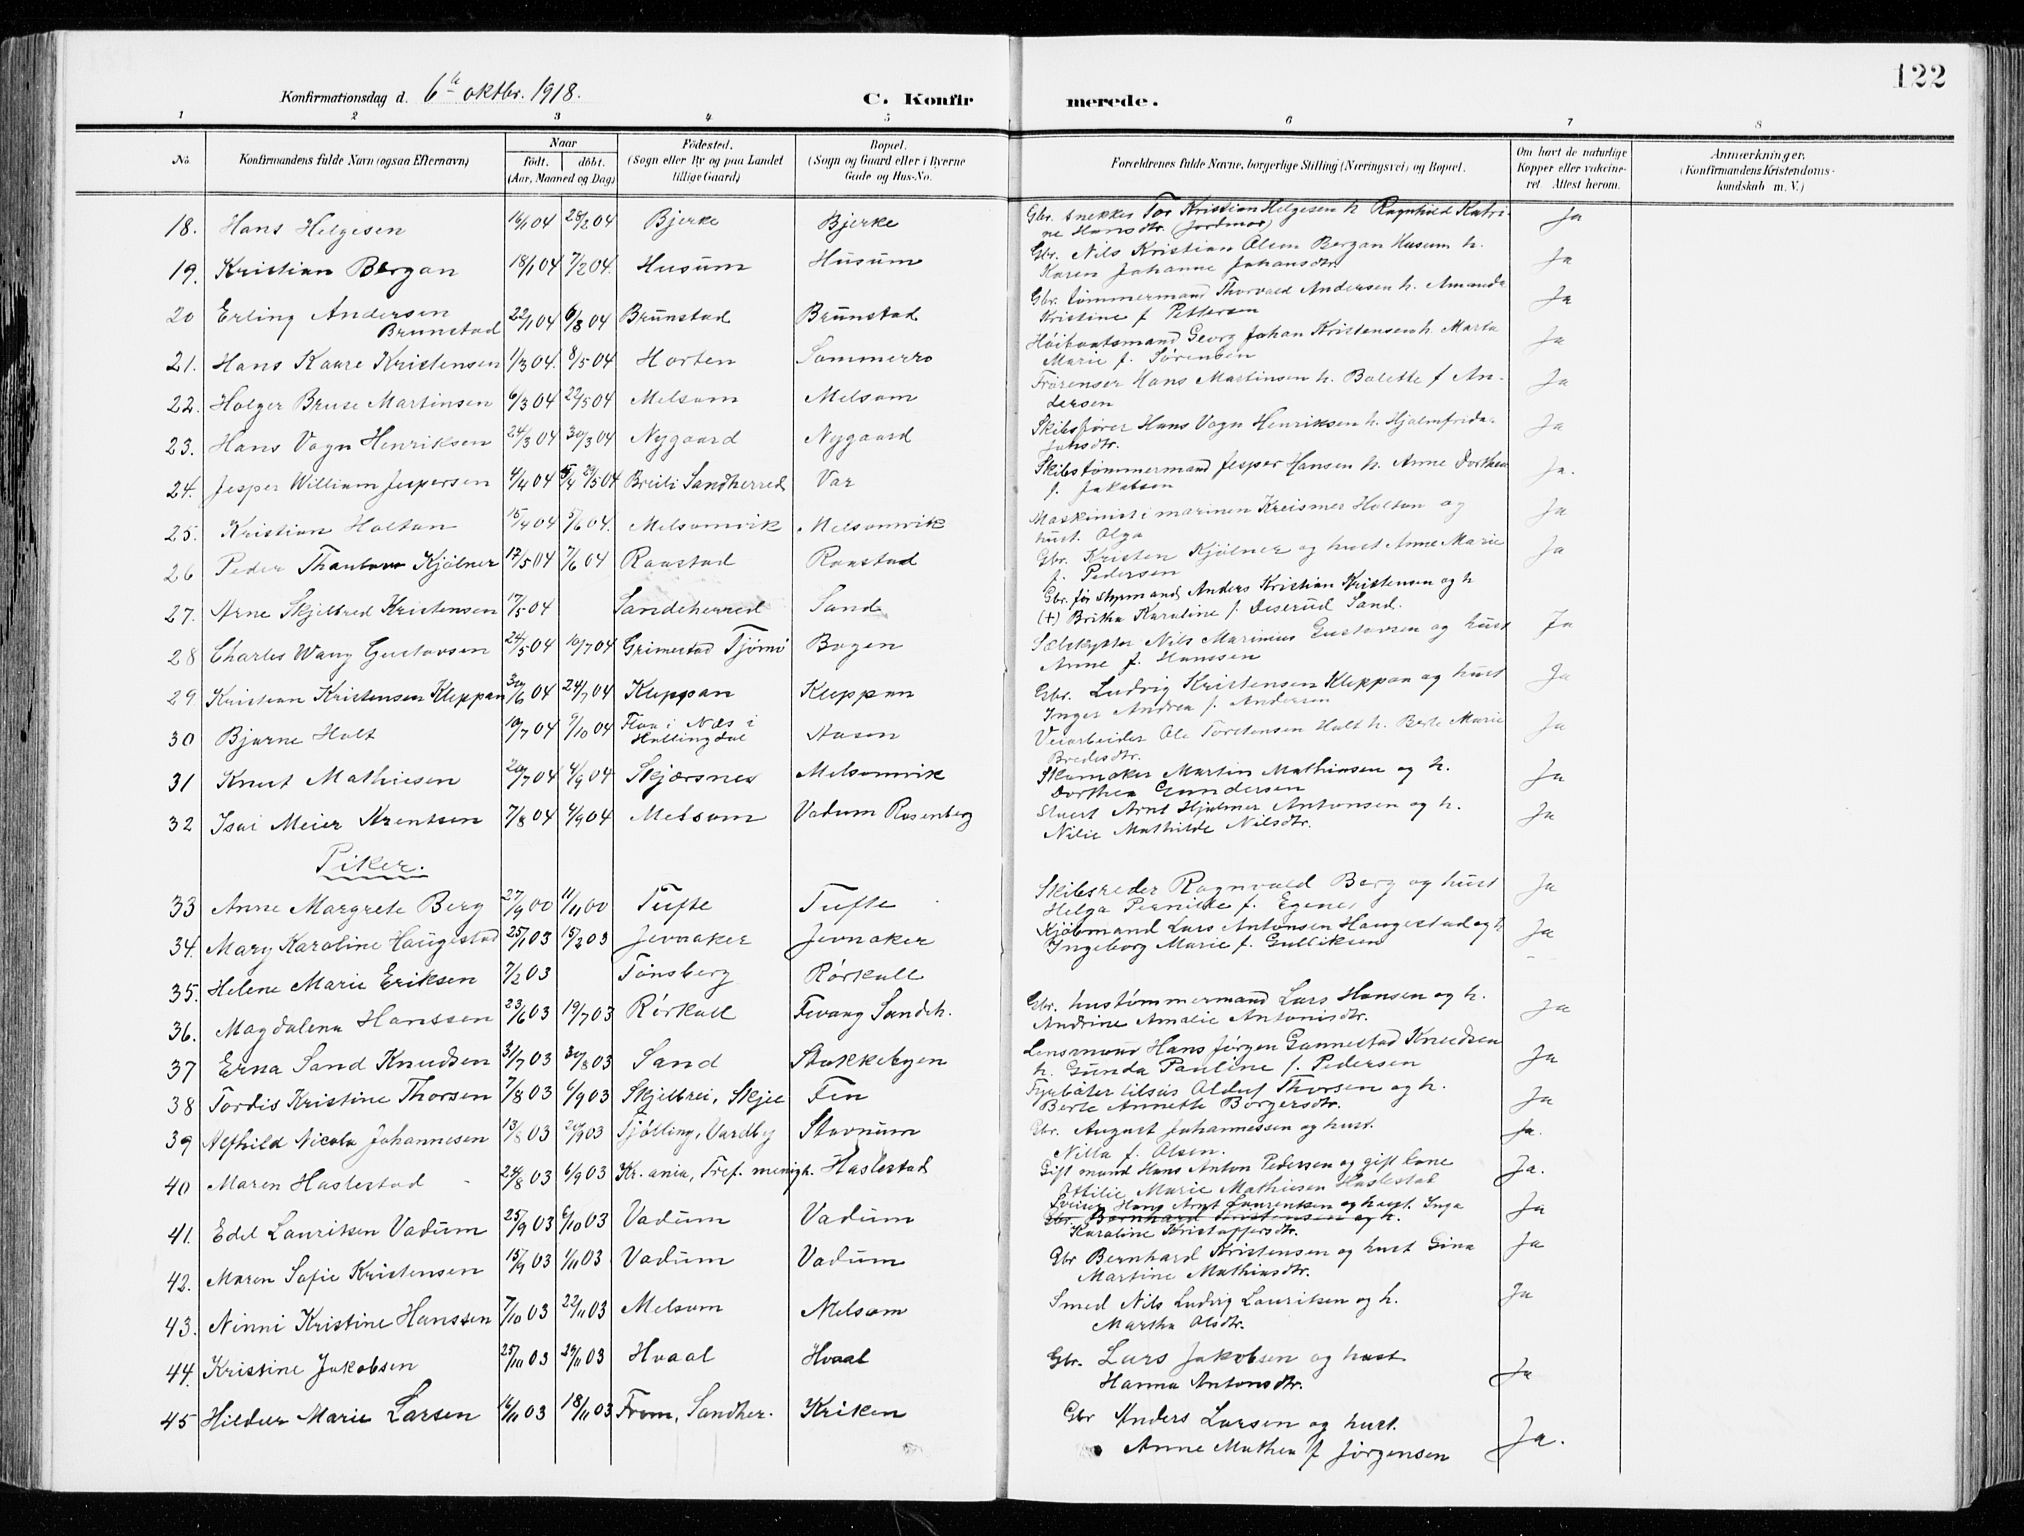 122
Konfirmationsdag d. 6te oktbr. 1918.
C. Konfirmerede.
1 2 3 4 5 6 7 8
No. Konfirmandens fulde Navn (ogsaa Efternavn) Naar født. døbt. (Aar, Maaned og Dag) Fødested. (Sogn eller By og paa Landet tillige Gaard) Bopæl. (Sogn og Gaard eller i Byerne Gade og Hus-No. Forældrenes fulde Navne, borgerlige Stilling (Næringsvei) og Bopæl. Om havt de naturlige Kopper eller vakcineret. Attest herom. Anmærkninger. (Konfirmandens Kristendomskundskab m. V.)
18. Hans Helgesen 16/1 04 28/2 04 Bjerke Bjerke Gbr. snekker Tor Kristian Helgesen h. Ragnhild Katri- Ja
ne Hansdtr. (Jordmor)
19. Kristian Bergan 18/1 04 7/2 04. Husum Husum Gbr. Nils Kristian Olsen Bergan Husum h. Ja
Karen Johanne Johansdtr.
20 Erling Andersen Brunstad 22/1 04 6/8 04 Brunstad Brunstad Gbr. tømmermand Thorvald Andersen h. Amanda Ja
Kristine f. Pettersen
21. Hans Kaare Kristensen 1/3 04. 8/5 04 Horten Sommerro Høibaatsmand Georg Johan Kristensen h. Marta Ja
Marie f. Sørensen
22. Holger Bruse Martinsen 6/3 04 22/5 04 Melsom Melsom Frørenser Hans Martinsen h. Bolette f An- Ja
dersen
23. Hans Vagn Henriksen 24/3 04 30/3 04 Nygaard Nygaard Skibsfører Hans Vagn Henriksen h. Hjalmfrida Ja
Johsdtr.
24. Jesper William Jespersen 4/4 04 29/5 04 Breili Sandherred Var Skibstømmermand Jesper Hansen h. Anne Dorthea Ja.
f. Jakobsen
25. Kristian Holtan 15/4 04 5/6 04. Melsomvik Melsomvik Maskinist i marinen Kreismer Holtan og Ja
hust. Olga
26 Peder Kjølner 17/5 04 7/6 04 Raastad Raastad Gbr. Kristen Kjølner og hust Anne Marie Ja
f. Pedersen
27. Arne Skjelbred Kristensen 17/5 04 Sandeherred Sand Gbr. før styrmand Anders Kristian Kristensen og h
(+) Britha Karoline f. Deserud Sand.
28 Charles Wang Gustavsen 24/5 04 10/7 04 Grimestad Tjømø Bogen Sælskytter Nils Marinius Gustavsen og hust Ja
Anne f. Hanssen
29. Kristian Kristensen Kleppan 30/6 04 24/7 04 Kleppan Kleppan Gbr. Ludvig Kristensen Kleppan og hust Ja
Inger Andrea f. Andersen
30 Bjarne Holt 10/7 04 9/10 04 Flaa i Næs i Hallingdal Aasen Veiarbeider Ole Torstensen Holt h. Berte Marie Ja
Bredesdtr.
31 Knut Mathiesen 20/7 04 4/9 04 Skjærsnes Melsomvik Skomaker Martin Mathiasen og h. Ja
Dorthea Gundersen
32 Isai Meier Arentsen 7/8 04 4/9 04 Melsom Vadum Rosenberg Stuert Arnt Hjalmer Antonsen og h. Ja
Nilie Mathilde Nilsdtr.
Piker.
33 Anne Margrete Berg 27/9 00 11/11 00 Tufte Tufte Skibsreder Ragnvald Berg og hust Ja
Helga Pernille f. Egenes
34. Mary Karoline Haugestad 25/1 03 15/2 03 Jevnaker Jevnaker Kjøbmand Lars Antonsen Haugestad og h Ja
Ingeborg Marie f. Gulliksen
35. Helene Marie Eriksen 7/2 03 Tønsberg Rørkoll
36. Magdalena Hanssen 23/6 03 19/7 03 Rørkoll Fevang Sandeh. Gbr. hustømmermand Lars Hansen og h. Ja
Andrine Amalie Antonisdtr.
37 Erna Sand Knudsen 31/7 03 30/8 03 Sand Stokkebyen Lensmand Hans Jørgen Gannestad Knudsen Ja
h. Gunda Pauline f. Pedersen
38 Tordis Kristine Thorsen 7/8 03 6/9 03 Skjelbrei, Skjee Fen Fyrbøter tilsjøs Olduf Thorsen og h. Ja
Berte Annette Borgersdtr.
39 Alfhild Nicola Johannesen 13/8 03 20/9 03 Tjølling, Vardby Stavnum Gbr. August Johannessen og hust. Ja.
Nilla f. Olsen.
40 Maren Haslestad 24/8 03 6/9 03 Kr. ania, Tref. menigh. Haslestad Gift mand Hans Anton Pedersen og gift kone Ja.
Ottilie Marie Mathiesen Haslestad
41. Edel Lauritsen Vadum 25/9 03 6/10 03 Vadum Vadum Sveiser Hans Arnt Laurentsen og hust. Inga Ja
Gbr. Bernhard Kristensen og h.
Karoline Kristoffersdtr.
42. Maren Sofie Kristensen 15/9 03 1/11 03 Vadum Vadum Gbr Bernhard Kristensen og hust Gina Ja
Martine Mathiasdtr.
43. Ninni Kristine Hanssen 7/10 03 22/11 03 Melsom Melsom Smed Nils Ludvig Lauritsen og h. Ja
Martha Olsdtr.
44. Kristine Jakobsen 25/10 03 29/11 03 Hvaal Hvaal Gbr. Lars Jakobsen og hust Ja
Hanna Antonsdtr.
45 Hildur Marie Larsen 16/11 03 18/11 03 From, Sandher. Kriken Gbr Anders Larsen og hust. Ja.
Anne Mathea f Jørgensen